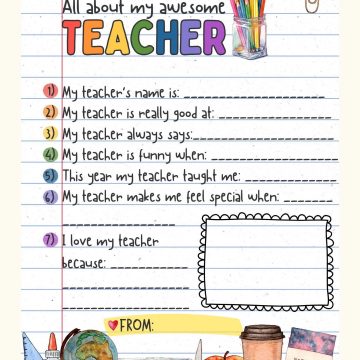 All about my awesome
TEACHER
1) My teacher's name is: ____________________
2) My teacher is really good at: ________________
3) My teacher always says:____________________
4) My teacher is funny when: __________________
5) This year my teacher taught me: _____________
6) My teacher makes me feel special when: _______
________________
7) I love my teacher
because: ___________
__________________
__________________
FROM: